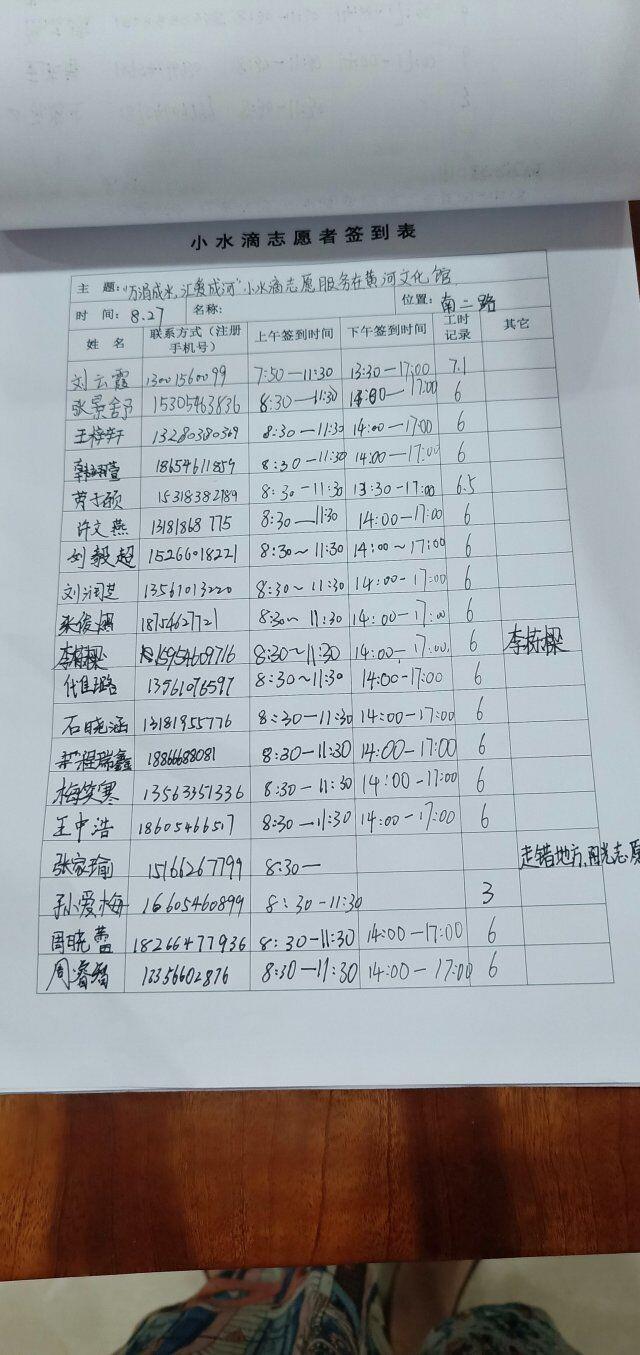 小水滴志愿者签到表
主 题："万涓成水,汇爱成河"小水滴志愿服务在黄河文化馆
时 间：8.27 名称： 位置：南二路
姓 名 联系方式（注册手机号） 上午签到时间 下午签到时间 工时记录 其它
刘云霞 13001560099 7:50—11:30 13:30—17:00 7.1
张景舒 15305463836 8:30—11:30 14:00—17:00 6
王梓轩 13280380369 8:30—11:30 14:00—17:00 6
韩翊萱 18654611859 8:30—11:30 14:00—17:00 6
15318382189 8:30—11:30 13:30—17:00 6.5
许文燕 13181868775 8:30—11:30 14:00—17:00 6
刘毅超 15266018221 8:30~11:30 14:00~17:00 6
刘润芝 13561013220 8:30~11:30 14:00-17:00 6
张俊娟 18754627721 8:30~11:30 14:00-17:00 6
李栋樑 15954609716 8:30~11:30 14:00-17:00. 6 李栋樑
代佳璐 13961076597 8:30~11:30 14:00-17:00 6
石晓涵 13181955776 8:30—11:30 14:00-17:00 6
程瑞鑫 18866688081 8:30—11:30 14:00-17:00 6
梅笑寒 13563351336 8:30—11:30 14:00-17:00 6
王中浩 18605466517 8:30—11:30 14:00-17:00 6
张家瑜 15166267799 8:30— 走错地方,阳光志愿
孙爱梅 16605460899 8:30-11:30 3
周晓蕾 18266477936 8:30—11:30 14:00—17:00 6
周睿智 13356602876 8:30—11:30 14:00—17:00 6